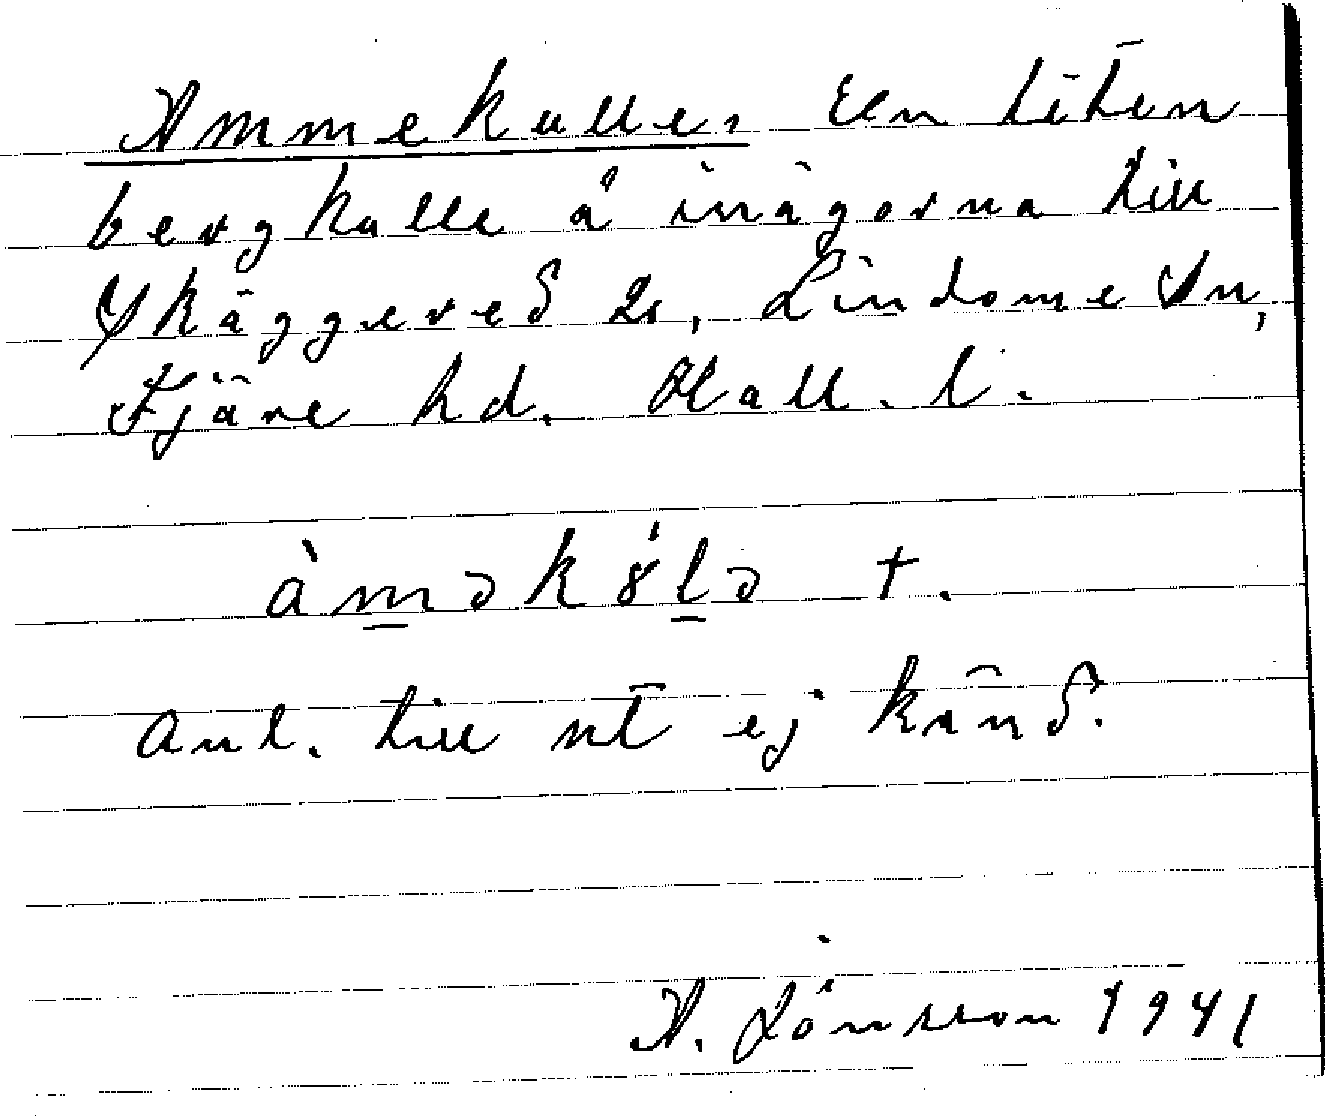 Ammekulle, En liten
bergkulle å inägorna till
Skäggered 2s, Lindome Sn,
Fjäre hd. Hall. l.
àməkȣ́lə +.
Anl. till nt ej känd.
A. Jönsson 1941